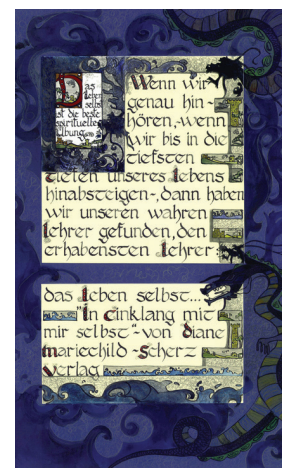 Das
Leben
selbst
ist die beste
spirituelle
Übung
Wenn wir
genau hin-
hören,-wenn
wir bis in die
tiefsten
tiefen unseres Lebens
hinabsteigen-,dann haben
wir unseren wahren
Lehrer gefunden, den
erhabensten Lehrer:
das Leben selbst...
"In Einklang mit
mir selbst"-von diane
mariechild -Scherz
verlag